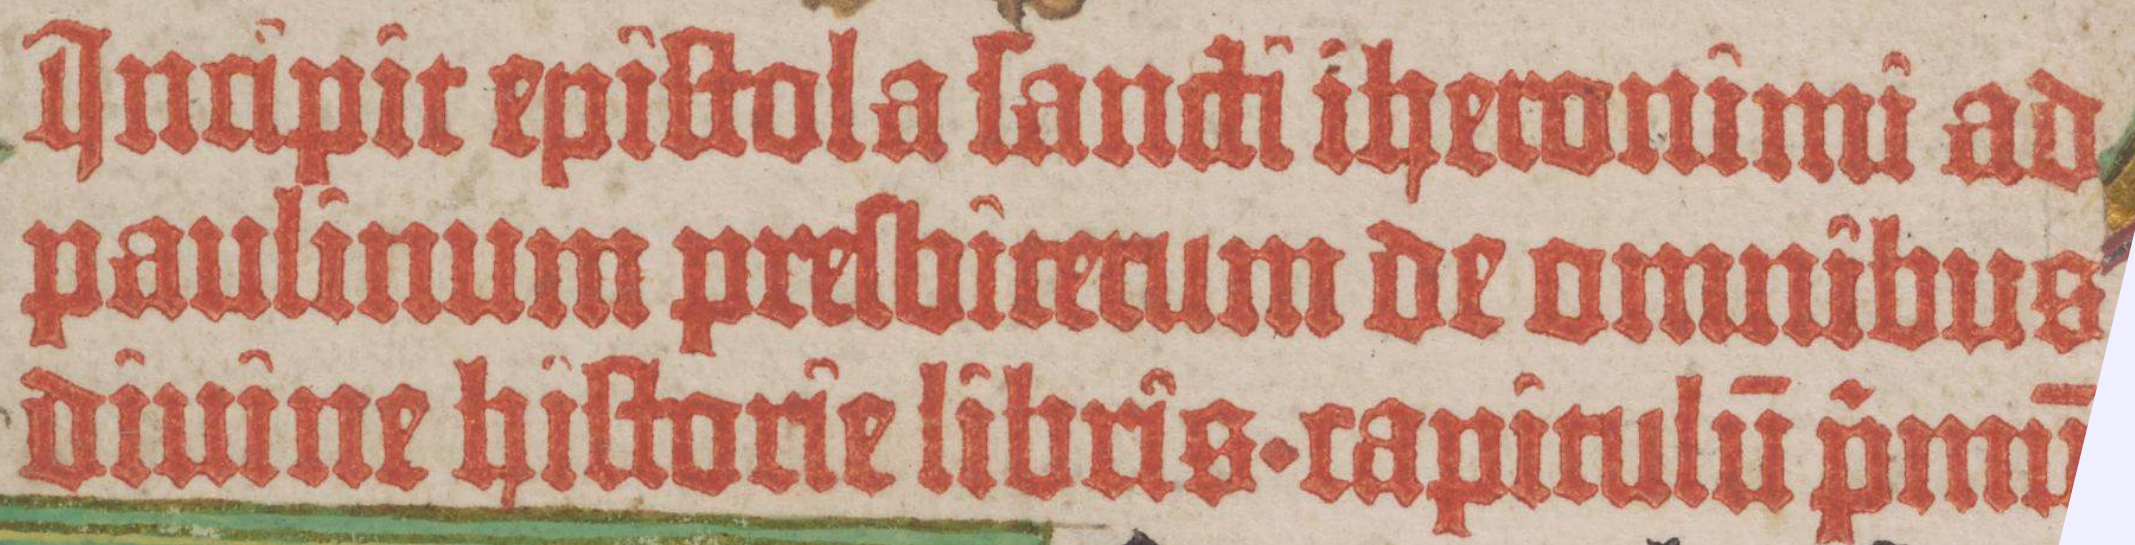 Incipit epistola sancti iheronimi ad
paulinum presbiterum de omnibus
diuine historie libris·capitulū p̄mū